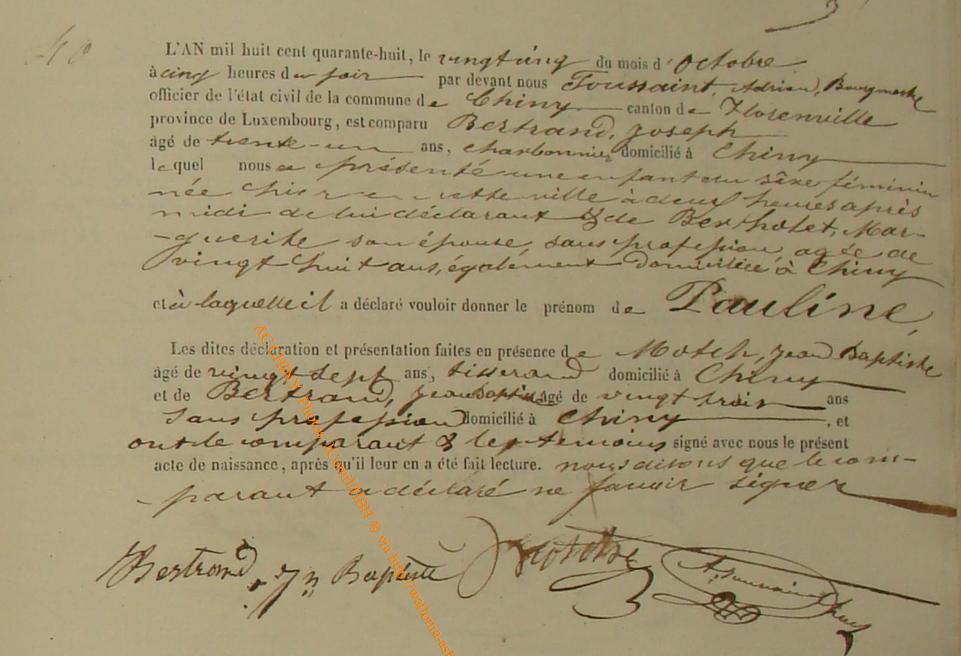 40
L'AN mil huit cent quarante-huit, le vingt cinq du mois d'octobre
à cinq heures du soir par devant nous Toussaint, Adrien, Bourgmestre
officier de l'état civil de la commune de Chiny canton de Florenville
province de Luxembourg, est comparu Bertrand, Joseph
âgé de trente-un ans, charbonnier domicilié à Chiny
lequel nous a présenté une enfant du sèxe féminin
née hier en cette ville à deux heures après
midi de lui déclarant & de Berthotet, Mar-
-guerite son épouse, sans profession, agée de
vingt huit ans, également domiciliée à Chiny
et à laquelle il a déclaré vouloir donner le prénom de Pauline,
Les dites déclaration et présentation faites en présence de Motch, Jean Baptiste
âgé de vingt sept ans, tisserand domicilié à Chiny
et de Bertrand, Jean Baptiste âgé de vingt trois ans
sans profession domicilié à Chiny, et
ont le comparant & les temoins signé avec nous le présent
acte de naissance, après qu'il leur en a été fait lecture. nous disons que le com-
-parant a déclaré ne savoir signer
Bertrand Jn Baptiste